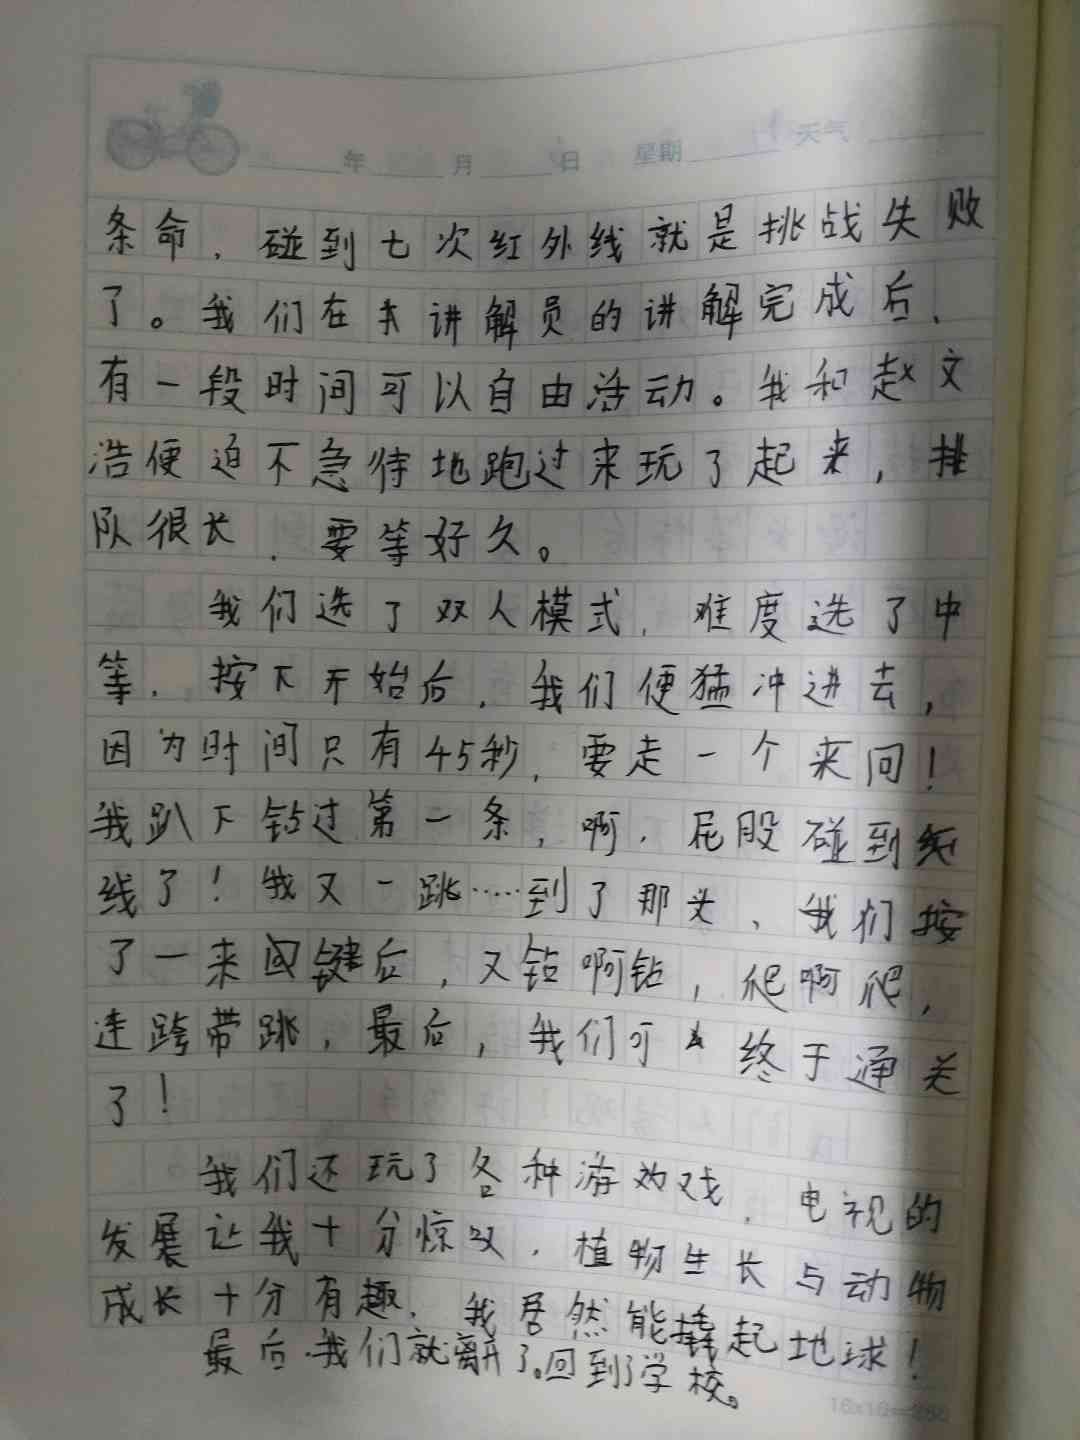 年 月 日 星期 天气
条命，碰到七次红外线就是挑战失败
了。我们在讲解员的讲解完成后、
有一段时间可以自由活动。我和赵文
浩便迫不急待地跑过来玩了起来，排
队很长，要等好久。
我们选了双人模式，难度选了中
等，按下开始后，我们便猛冲进去，
因为时间只有45秒，要走一个来回！
我趴下钻过第一条，啊，屁股碰到
线了！我又一跳……到了那头、我们按
了一来回键后，又钻啊钻，爬啊爬，
连跨带跳，最后，我们可终于通关
了！
我们还玩了各种游戏，电视的
发展让我十分惊叹，植物生长与动物
成长十分有趣，我居然能撬起地球！
最后，我们就离开了。回到了学校。
16x16=256